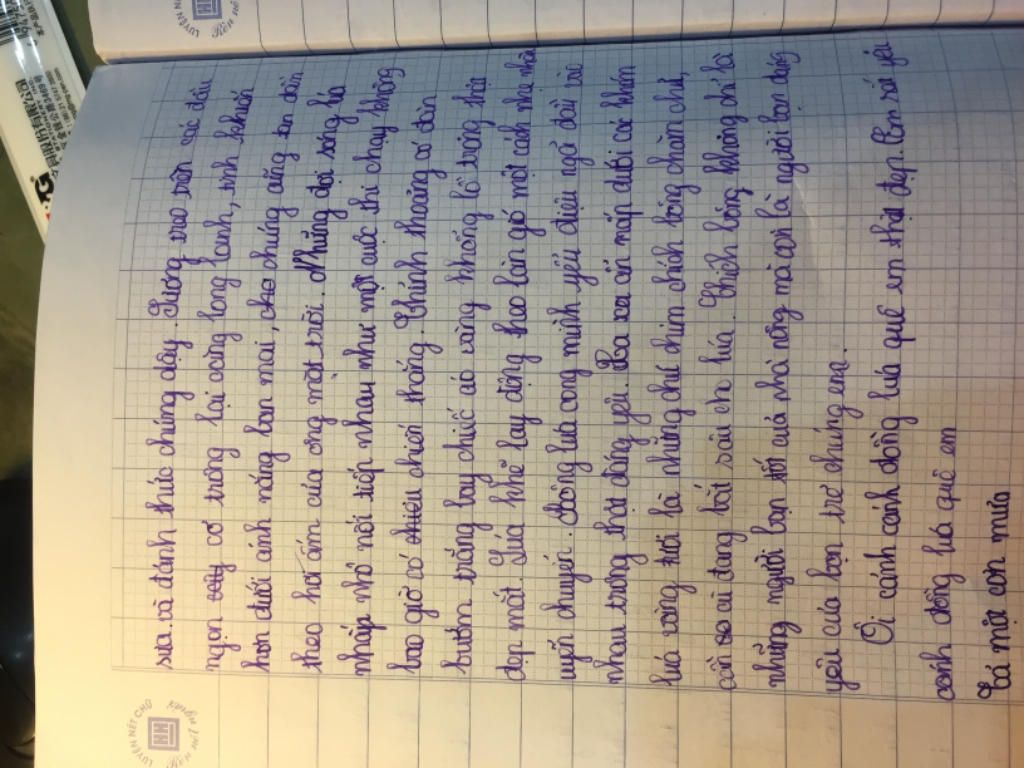 sưa và đánh thức chúng dậy. Sương rơi trên các đầu
ngọn cỏ trông lại càng long lanh, tinh khiết
hơn dưới ánh nắng ban mai, cho chúng cũng tan dần
theo hơi ấm của ông mặt trời. Những đợt sóng lúa
nhấp nhô nối tiếp nhau như một cuộc thi chạy không
bao giờ có chiến thắng. Thỉnh thoảng có đàn
bướm trắng bay chiếc áo vàng khổng lồ trông thật
đẹp mắt. Lúa khẽ lay động theo làn gió một cách nhẹ nhàn
uyển chuyển. Đồng lúa cong mình yểu điệu ngả đầu vào
nhau trông thật đáng yêu. Xa xa ẩn mấp dưới các khóm
lúa vàng tươi là những chú chim chích bông chăm chỉ,
cần cù đang bắt sâu cho lúa. Chích bông không chỉ là
những người bạn tốt của nhà nông mà còn là người bạn đáng
yêu của bọn trẻ chúng em.
Ôi cánh cánh đồng lúa quê em thật đẹp. Em rất yêu
cánh đồng lúa quê em
Tả một cơn mưa
LUYỆN NÉT CHỮ
HH
LUYỆN NÉT